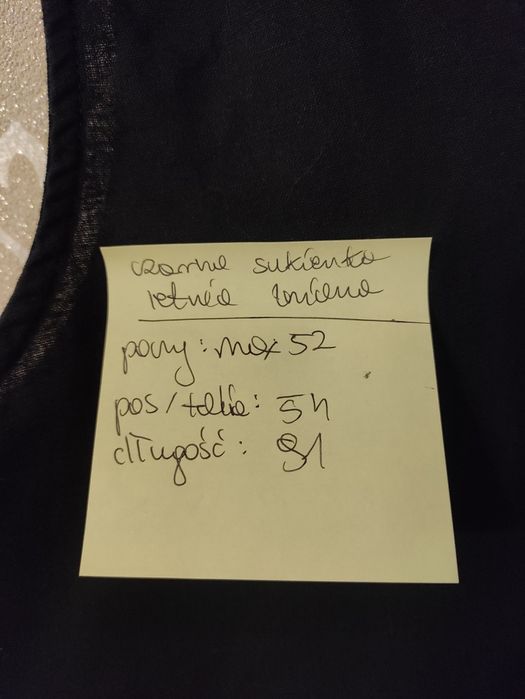 czarna sukienka
letnia lniana
pachy: max 52
pas/talia: 54
długość: 91